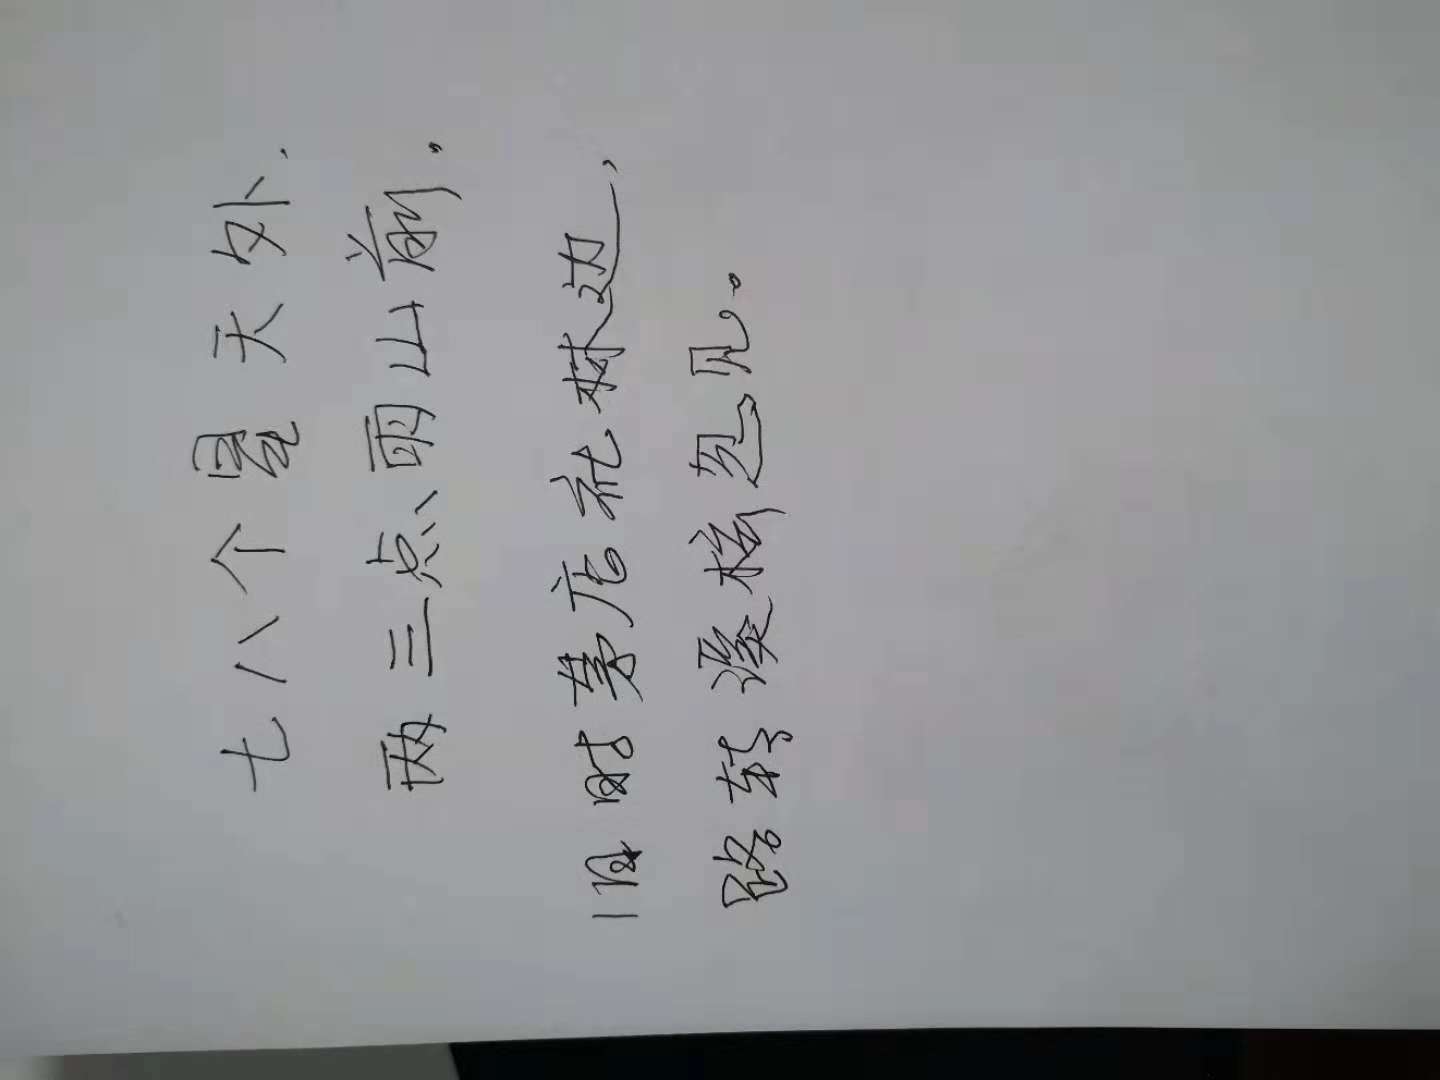 七八个星天外.
两三点雨山前.
旧时茅店社林边,
路转溪桥忽见。